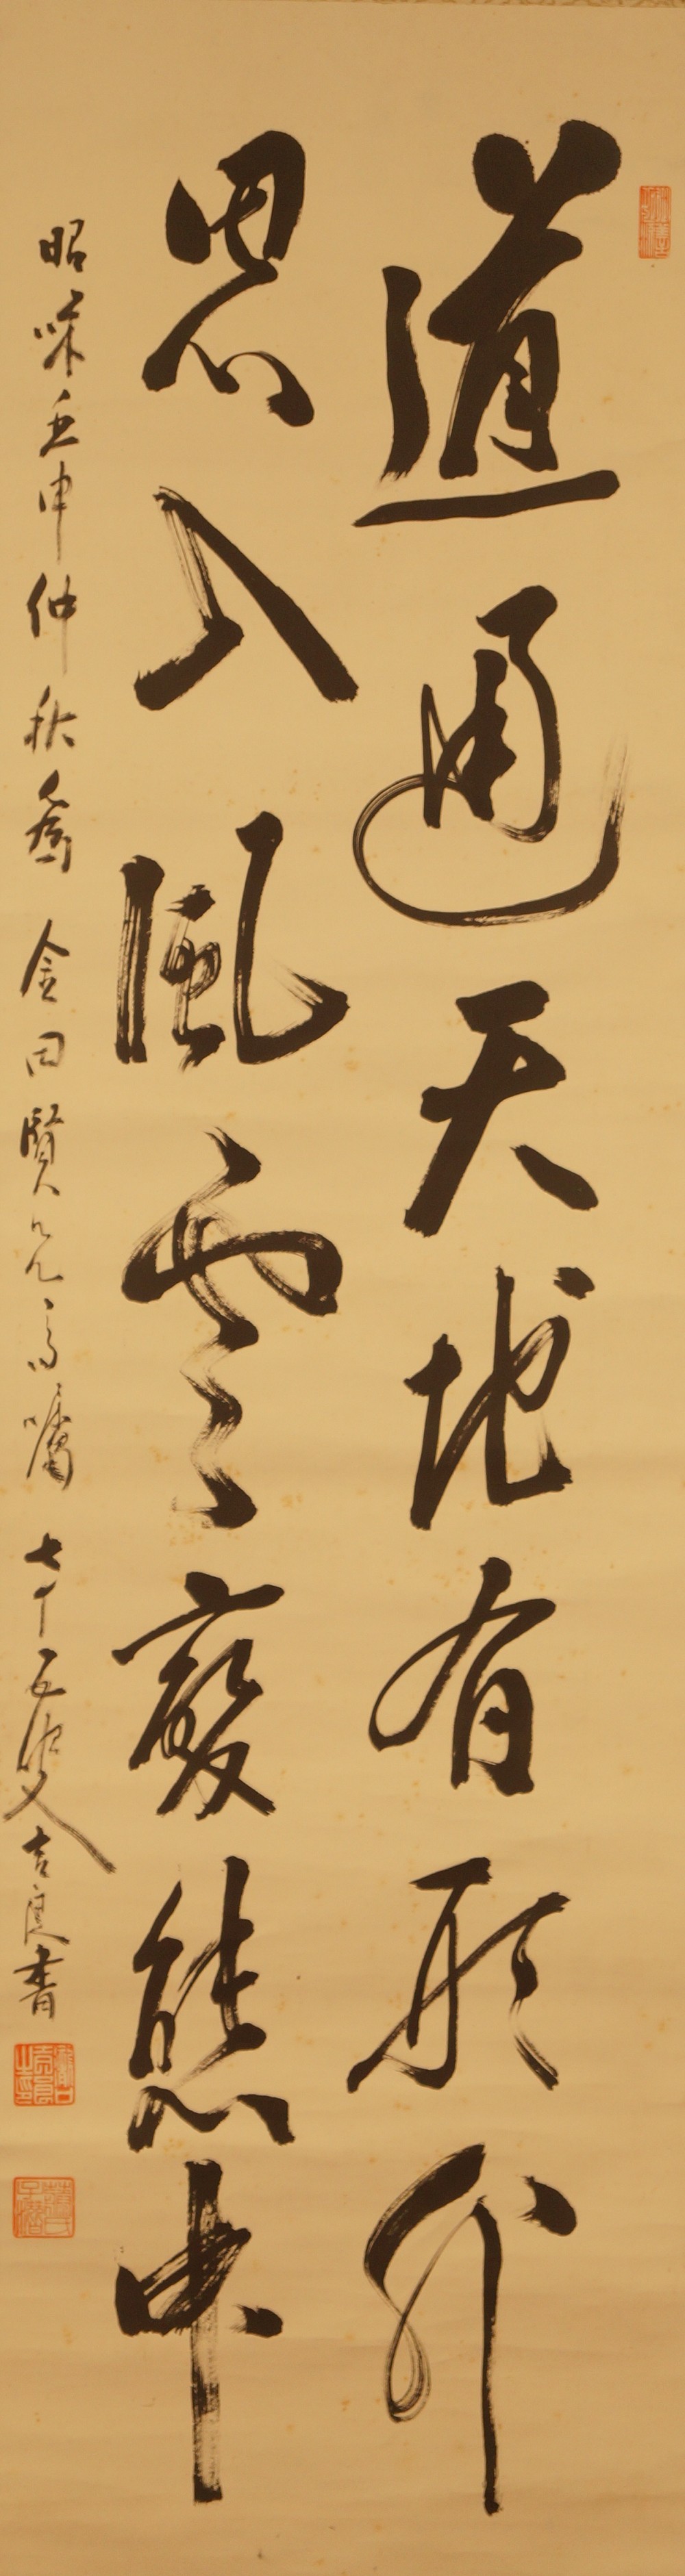 道通天地有形外
思入風雲變態中
昭和壬申仲秋為 金田賢兄高嘱 七十五叟 吉良書